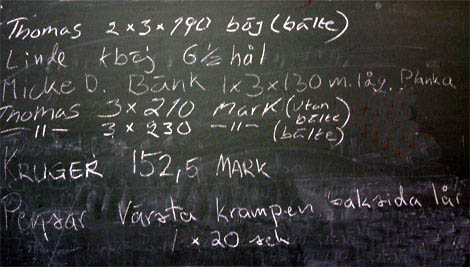 Thomas 2x3x190 böj (bälte)
Linde kböj 6½ hål
Micke D. Bänk 1x3x130 m. låg. Planka
Thomas 3x210 Mark (utan bälte)
—11— 3x230 —11— (bälte)
KRUGER 152,5 MARK
Pensar Värsta krampen baksida lår
1 x 20 sek